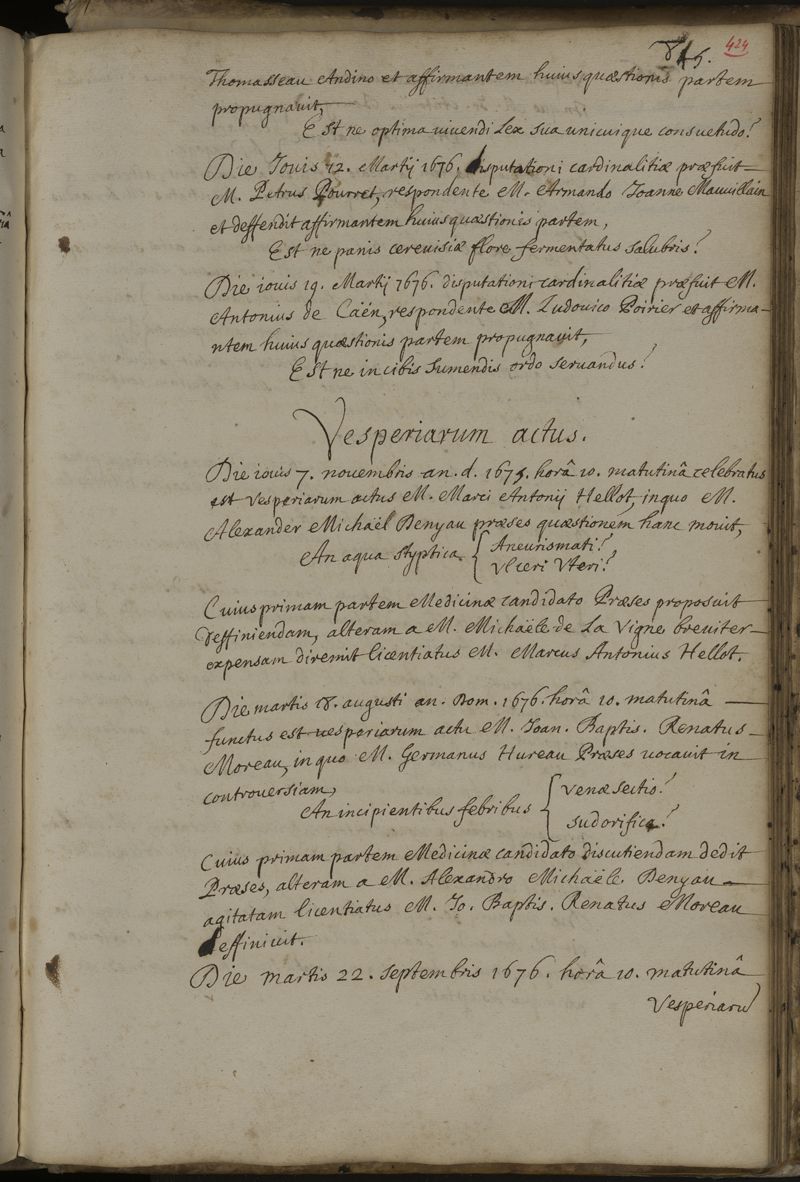 845. 424
Thomasseau Andino et affirmantem huius quæstionis partem
propugnauit,
Est ne optima uiuendi Lex sua unicuique consuetudo?
Die Iouis 12. Martij 1676. disputationi cardinalitiæ præfuit
M. Petrus Pourret, respondente M. Armando Joanne Mauuillain
et deffendit affirmantem huius quæstionis partem,
Est ne panis cereuisiæ flore fermentatus salubris?
Die iouis 19. Martij 1676. disputationi cardinalitiæ præfuit M.
Antonius de Caën, respondente M. Ludouico Poirier et affirma-
ntem huius quæstionis partem propugnauit,
Est ne in cibis sumendis ordo seruandus?
Vesperiarum actus.
Die iouis 7. nouembris an. d. 1675. horâ 10. matutinâ celebratus
est Vesperiarum actus M. Marci Antonij Hellot, in quo M.
Alexander Michaël Denyau præses quæstionem hanc mouit,
An aqua styptica { Aneurismati?
Vlceri Vteri?
Cuius primam partem Medicinæ candidato Præses proposuit
deffiniendam, alteram a M. Michaële de La Vigne breuiter
expensam diremit licentiatus M. Marcus Antonius Hellot.
Die martis 18. augusti an. Dom. 1676. horâ 10. matutinâ
functus est uesperiarum actu M. Joan. Baptis. Renatus
Moreau, in quo M. Germanus Hureau Præses uocauit in
controuersiam,
An incipientibus febribus { venæ sectio?
sudorifica?
Cuius primam partem Medicinæ candidato discutiendam dedit
Præses, alteram a M. Alexandro Michaële Denyau
agitatam licentiatus M. Jo. Baptis. Renatus Moreau
deffiniuit.
Die martis 22. septembris 1676. horâ 10. matutinâ
Vesperiarū